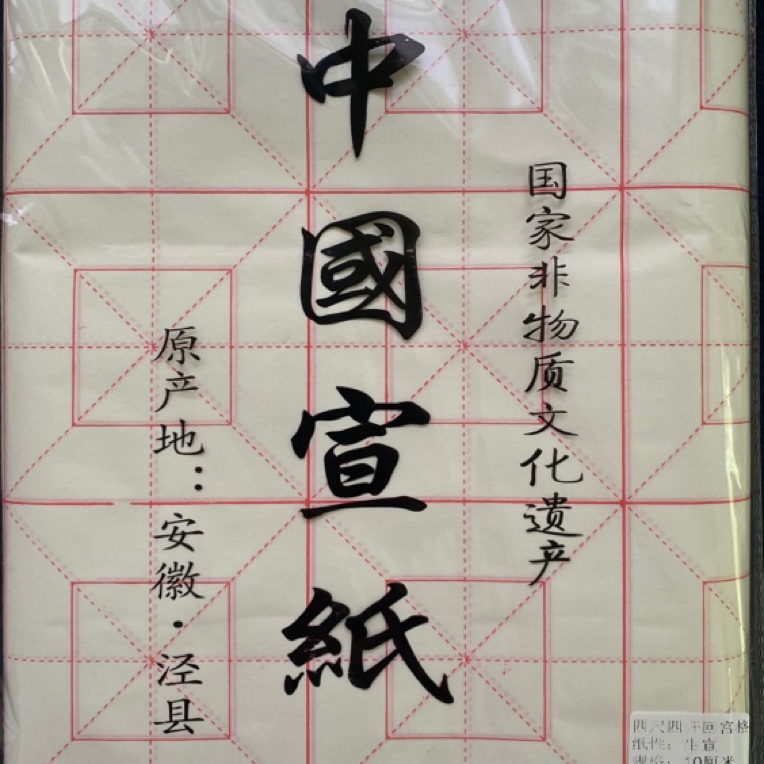 国家非物质文化遗产
中國宣紙
原产地：安徽·泾县
四尺四开回宫格
纸性：生宣
规格：10厘米